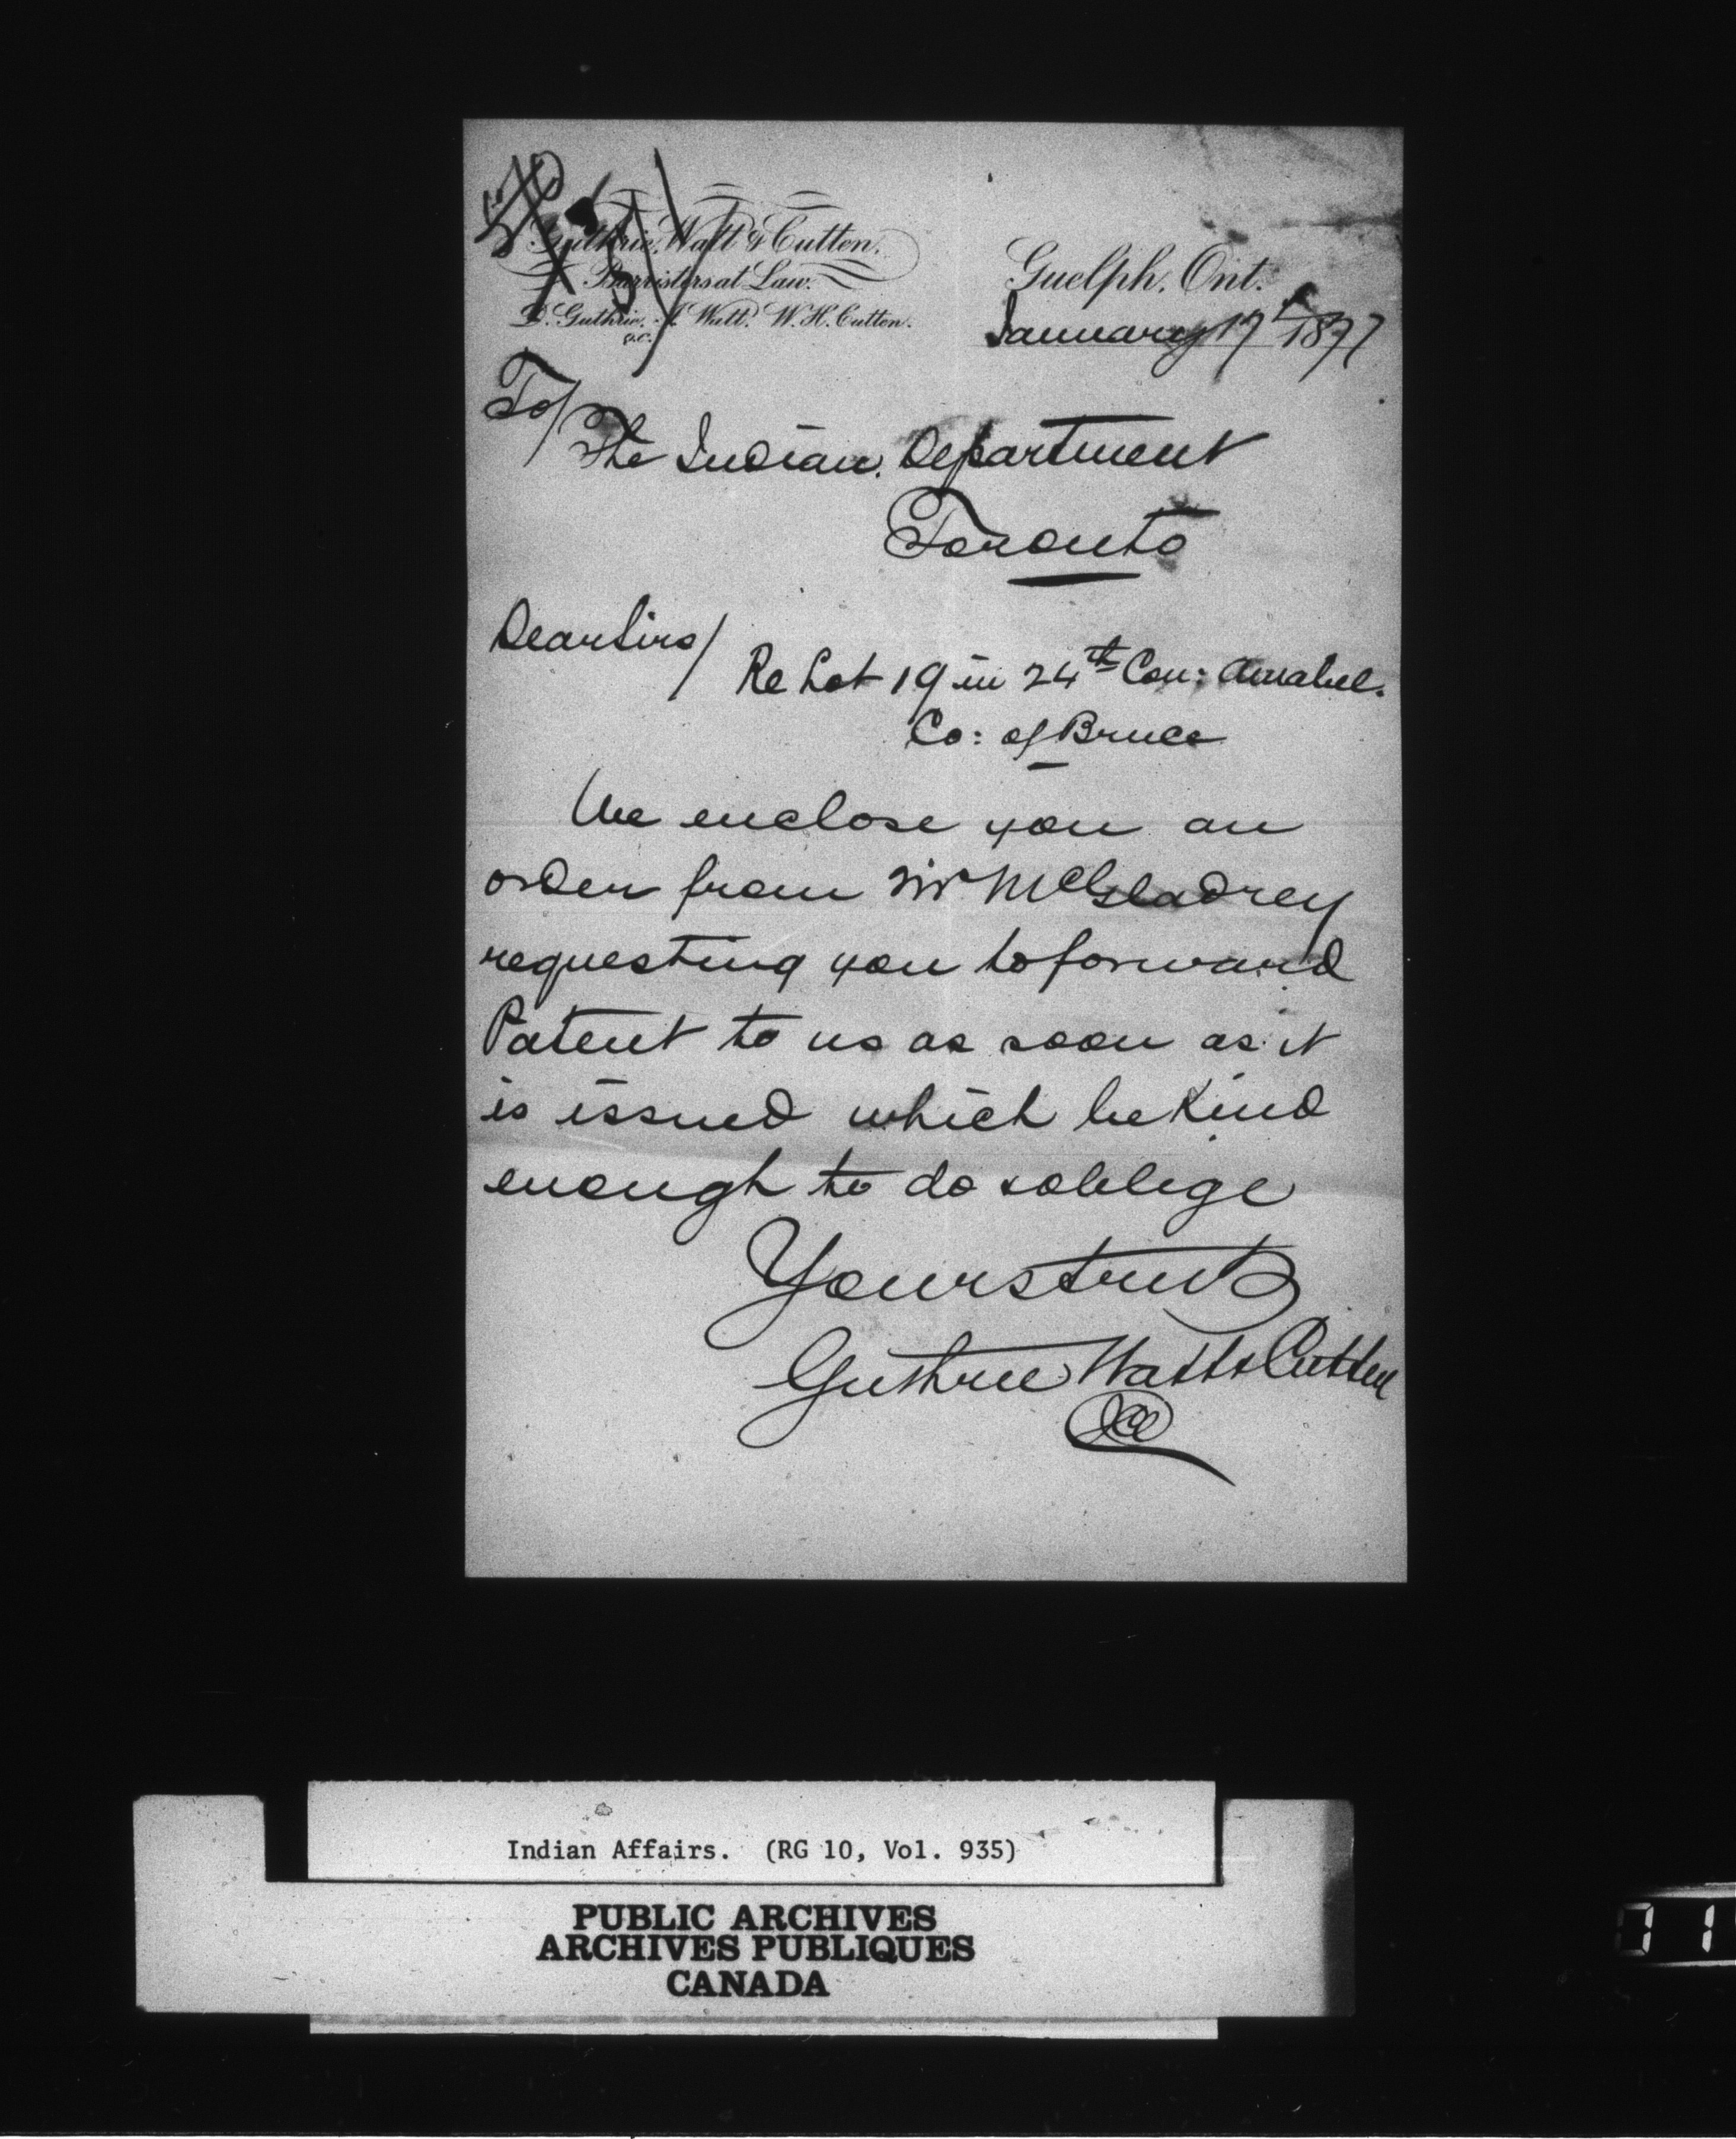 Guthrie, Watt & Cutten.
Barristers at Law.
D. Guthrie, J. Watt. W. H. Cutten.
Q.C.
Guelph. Ont.
January 17th 1877
To/
The Indian Department
Toronto
Dear Sirs/
Re Lot 19 in 24th Con: Amabel.
Co: of Bruce
We enclose you an
order from Mr McGladrey
requesting you to forward
Patent to us as soon as it
is issued which be kind
enough to do & oblige
Yours truly
Guthrie Watt & Cutten
Indian Affairs. (RG 10, Vol. 935)
PUBLIC ARCHIVES
ARCHIVES PUBLIQUES
CANADA